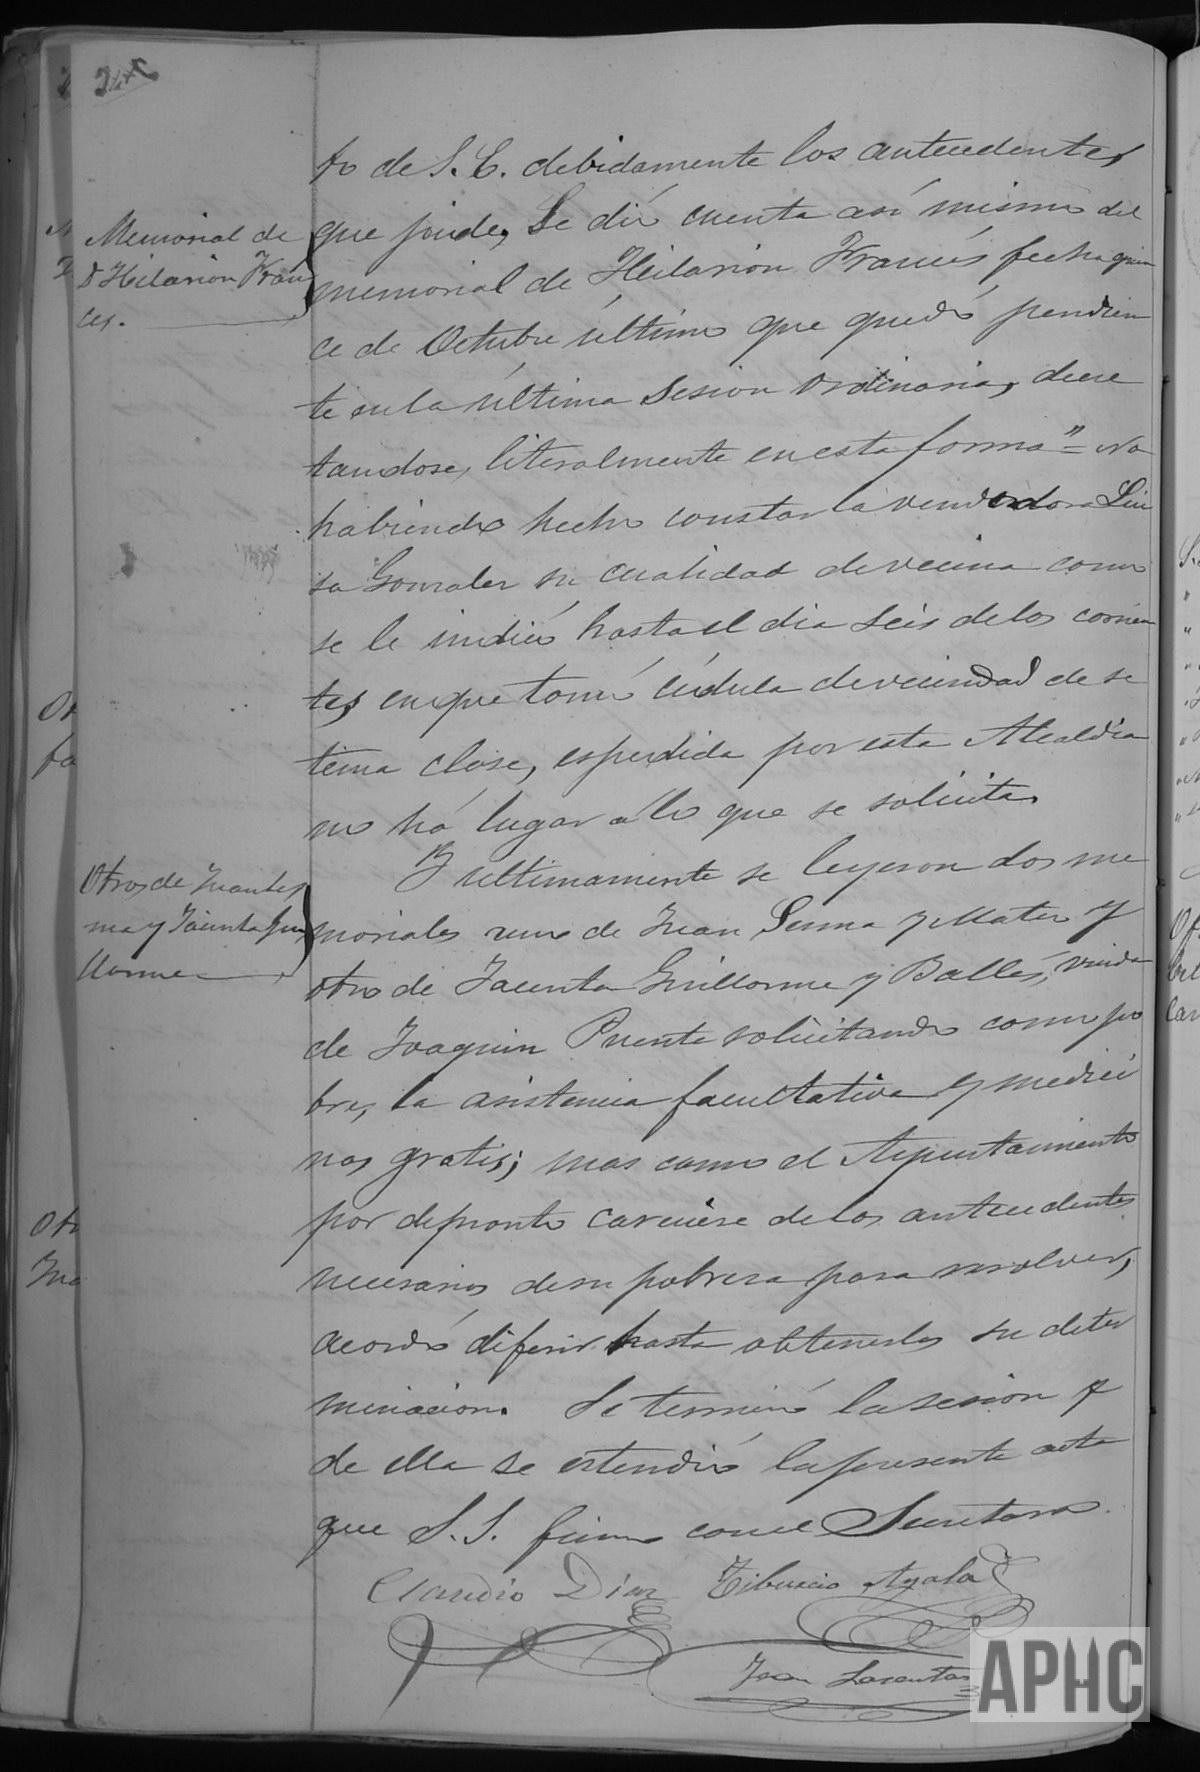 to de S. E. debidamente los antecedentes
que pide, Se dió cuenta así mismo del
Memorial de
D Hilarion Fran
ces.
memorial de Heilarion Francés fecha quin
ce de Octubre último que quedó pendien
te en la última Sesion ordinaria, decre
tandose, literalmente en esta forma "= No
habiendo hecho constar la vendedora Lui
sa Gonzalez su cualidad de vecina como
se le indicó hasta el dia Seis de los corrien
tes en que tomó cédula de vecindad de se
tima clase, espedida por esta Alcaldia
no há lugar a lo que se solicita.
Y ultimamente se leyeron dos me
Otros de Juan Ler
ma y Jacinta Gui
llorme
moriales uno de Juan Serma y Mater y
otro de Jacinta Guillorme y Ballés, viuda
de Joaquin Puente solicitando como po
bres, la asistencia facultativa y medici
nas gratis; mas como el Ayuntamiento
por depronto careciese de los antecedentes
necesarios de su pobreza para resolver,
acordó diferir hasta obtenerlos su deter
minacion. Se terminó la sesion y
de ella se estendió la presente acta
que S. S. firma con el Secretario.
Claudio Diaz Tiburcio Ayala
Juan
APHC